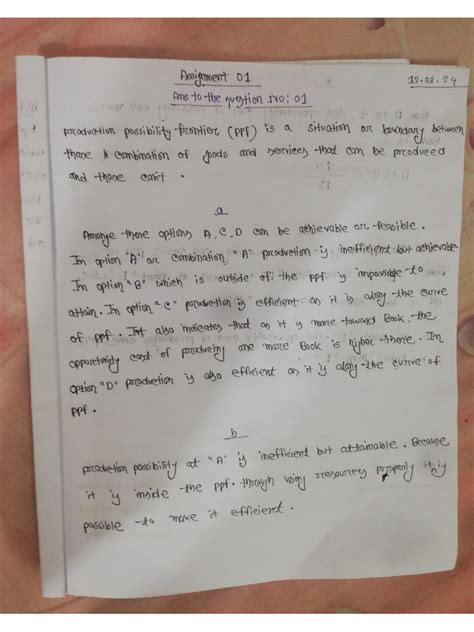 Assignment 01
12.03.24
Ans to the question no: 01
production possibility frontier (PPF) is a situation or boundary between
those combination of goods and services that can be produced
and those can't.
a
Amonge those options A, C, D can be achievable or feasible.
In option "A" or combination "A" production is inefficient but achievable
In option "B" which is outside of the PPF is impossible to
attain. In option "C" production is efficient as it is along the curve
of PPF. It also indicates that as it is more toward Book, the
opportunity cost of producing one more Book is higher there. In
option "D" production is also efficient as it is along the curve of
PPF.
b
production possibility at "A" is inefficient but attainable. Because
it is inside the PPF. through using resources properly it is
possible to make it efficient.